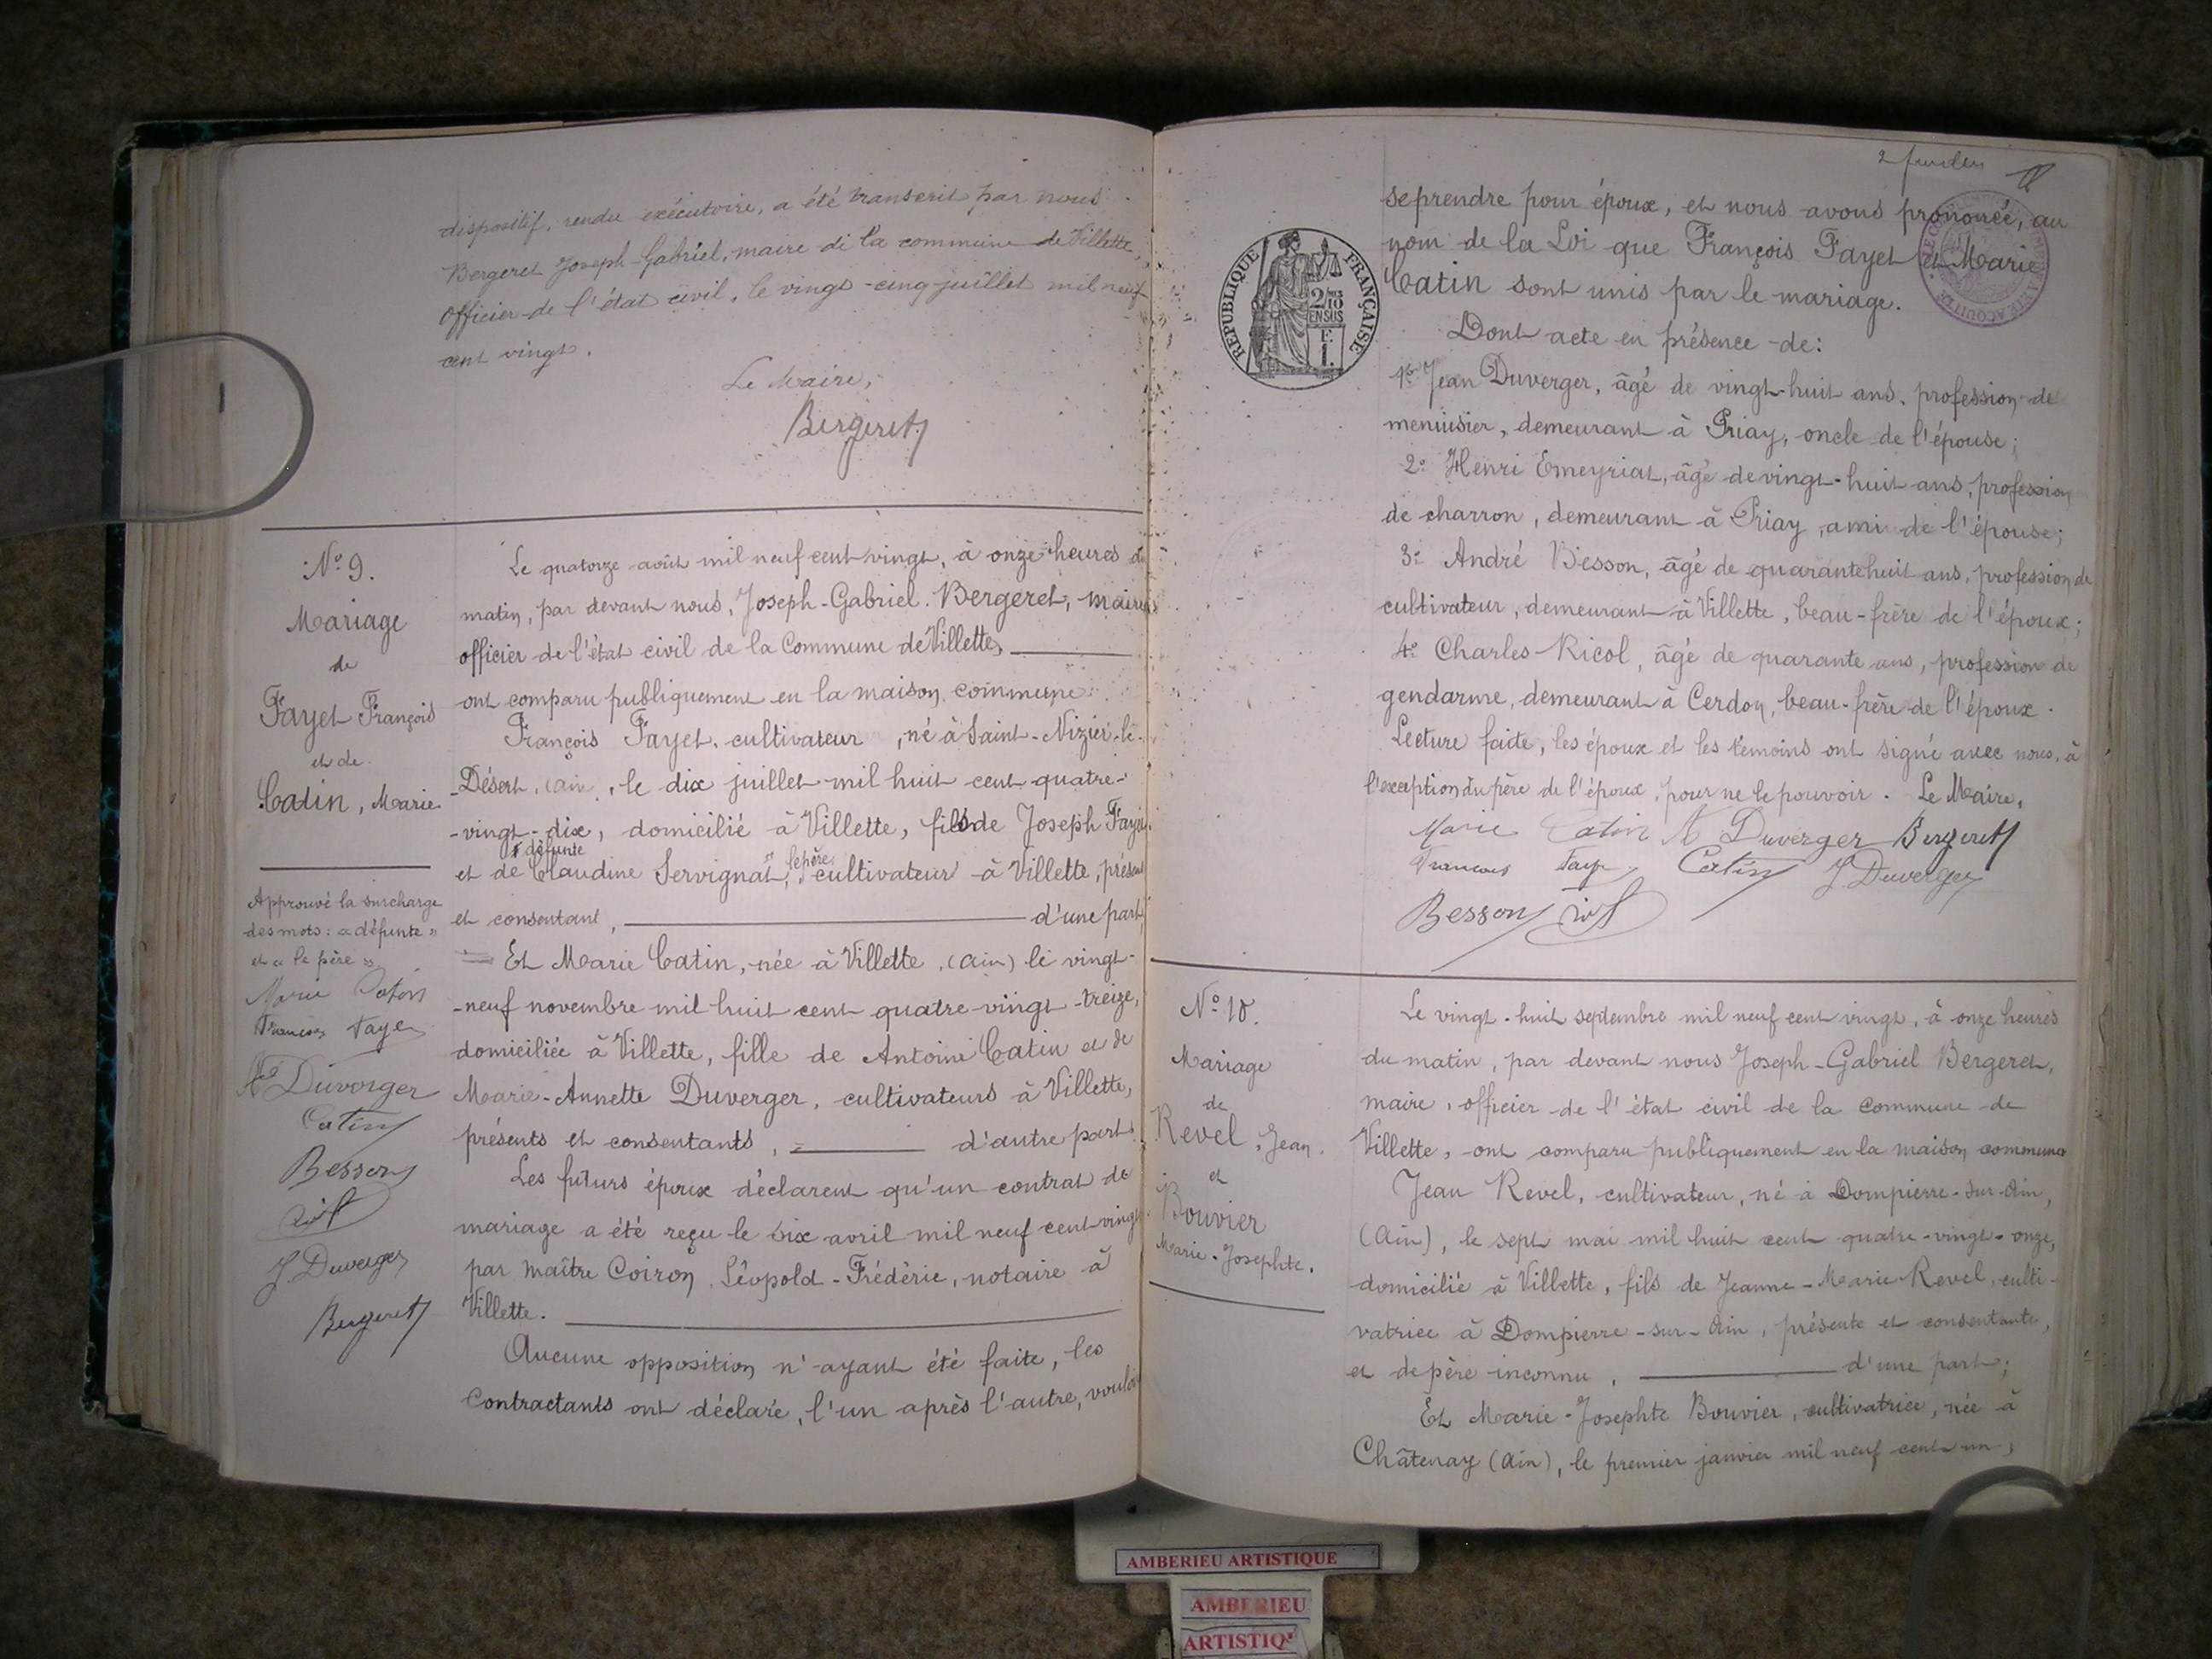 dispositif, rendu exécutoire, a été transcrit par nous
Bergeret Joseph-Gabriel, maire de la commune de Villette,
Officier de l'état civil, le vingt-cinq juillet mil neuf
cent vingt.
Le Maire,
Bergeret
Nº 9.
Mariage
de
Fayet François
et de
Catin, Marie
Approuvé la surcharge
des mots: « défunte »
et « le père ».
Marie Catin
François Faye
Duverger
Catin
Besson
J. Duverger
Bergeret
Le quatorze août mil neuf cent vingt, à onze heures du
matin, par devant nous, Joseph-Gabriel Bergeret, maire
officier de l'état civil de la Commune de Villette,
ont comparu publiquement en la maison commune
François Fayet, cultivateur, né à Saint-Nizier-le-
-Désert, (ain), le dix juillet mil huit cent quatre-
-vingt-dix, domicilié à Villette, fils de Joseph Fayet
défunte le père
et de Claudine Servignat, cultivateur à Villette, présent
et consentant, d'une part,
Et Marie Catin, née à Villette, (ain) le vingt-
-neuf novembre mil huit cent quatre-vingt-treize,
domiciliée à Villette, fille de Antoine Catin et de
Marie-Annette Duverger, cultivateurs à Villette,
présents et consentants, d'autre part.
Les futurs époux déclarent qu'un contrat de
mariage a été reçu le six avril mil neuf cent vingt
par maître Coiron, Léopold-Frédéric, notaire à
Villette.
Aucune opposition n'ayant été faite, les
contractants ont déclaré, l'un après l'autre, vouloir
se prendre pour époux, et nous avons prononcé, au
nom de la Loi que François Fayet et Marie
Catin sont unis par le mariage.
RÉPUBLIQUE FRANÇAISE
Dont acte en présence de:
1º Jean Duverger, âgé de vingt-huit ans, profession de
menuisier, demeurant à Priay, oncle de l'épouse;
2º Henri Emeyriat, âgé de vingt-huit ans, profession
de charron, demeurant à Priay, ami de l'épouse;
3º André Besson, âgé de quarante huit ans, profession de
cultivateur, demeurant à Villette, beau-frère de l'époux;
4º Charles Ricol, âgé de quarante ans, profession de
gendarme, demeurant à Cerdon, beau-frère de l'époux.
Lecture faite, les époux et les témoins ont signé avec nous, à
l'exception du père de l'époux, pour ne le pouvoir. Le Maire,
Marie Catin Duverger Bergeret
François Faye Catin J Duverger
Besson
Nº 10.
Mariage
de
Revel, Jean.
et
Bouvier
Marie-Josephte.
Le vingt-huit septembre mil neuf cent vingt, à onze heures
du matin, par devant nous Joseph-Gabriel Bergeret,
maire, officier de l'état civil de la commune de
Villette, ont comparu publiquement en la maison commune
Jean Revel, cultivateur, né à Dompierre-sur-Ain,
(Ain), le sept mai mil huit cent quatre-vingt-onze,
domicilié à Villette, fils de Jeanne-Marie Revel, culti-
vatrice à Dompierre-sur-Ain, présente et consentante,
et de père inconnu, d'une part;
Et Marie-Josephte Bouvier, cultivatrice, née à
Châtenay (Ain), le premier janvier mil neuf cent un,
AMBERIEU ARTISTIQUE
AMBERIEU
ARTISTIQ